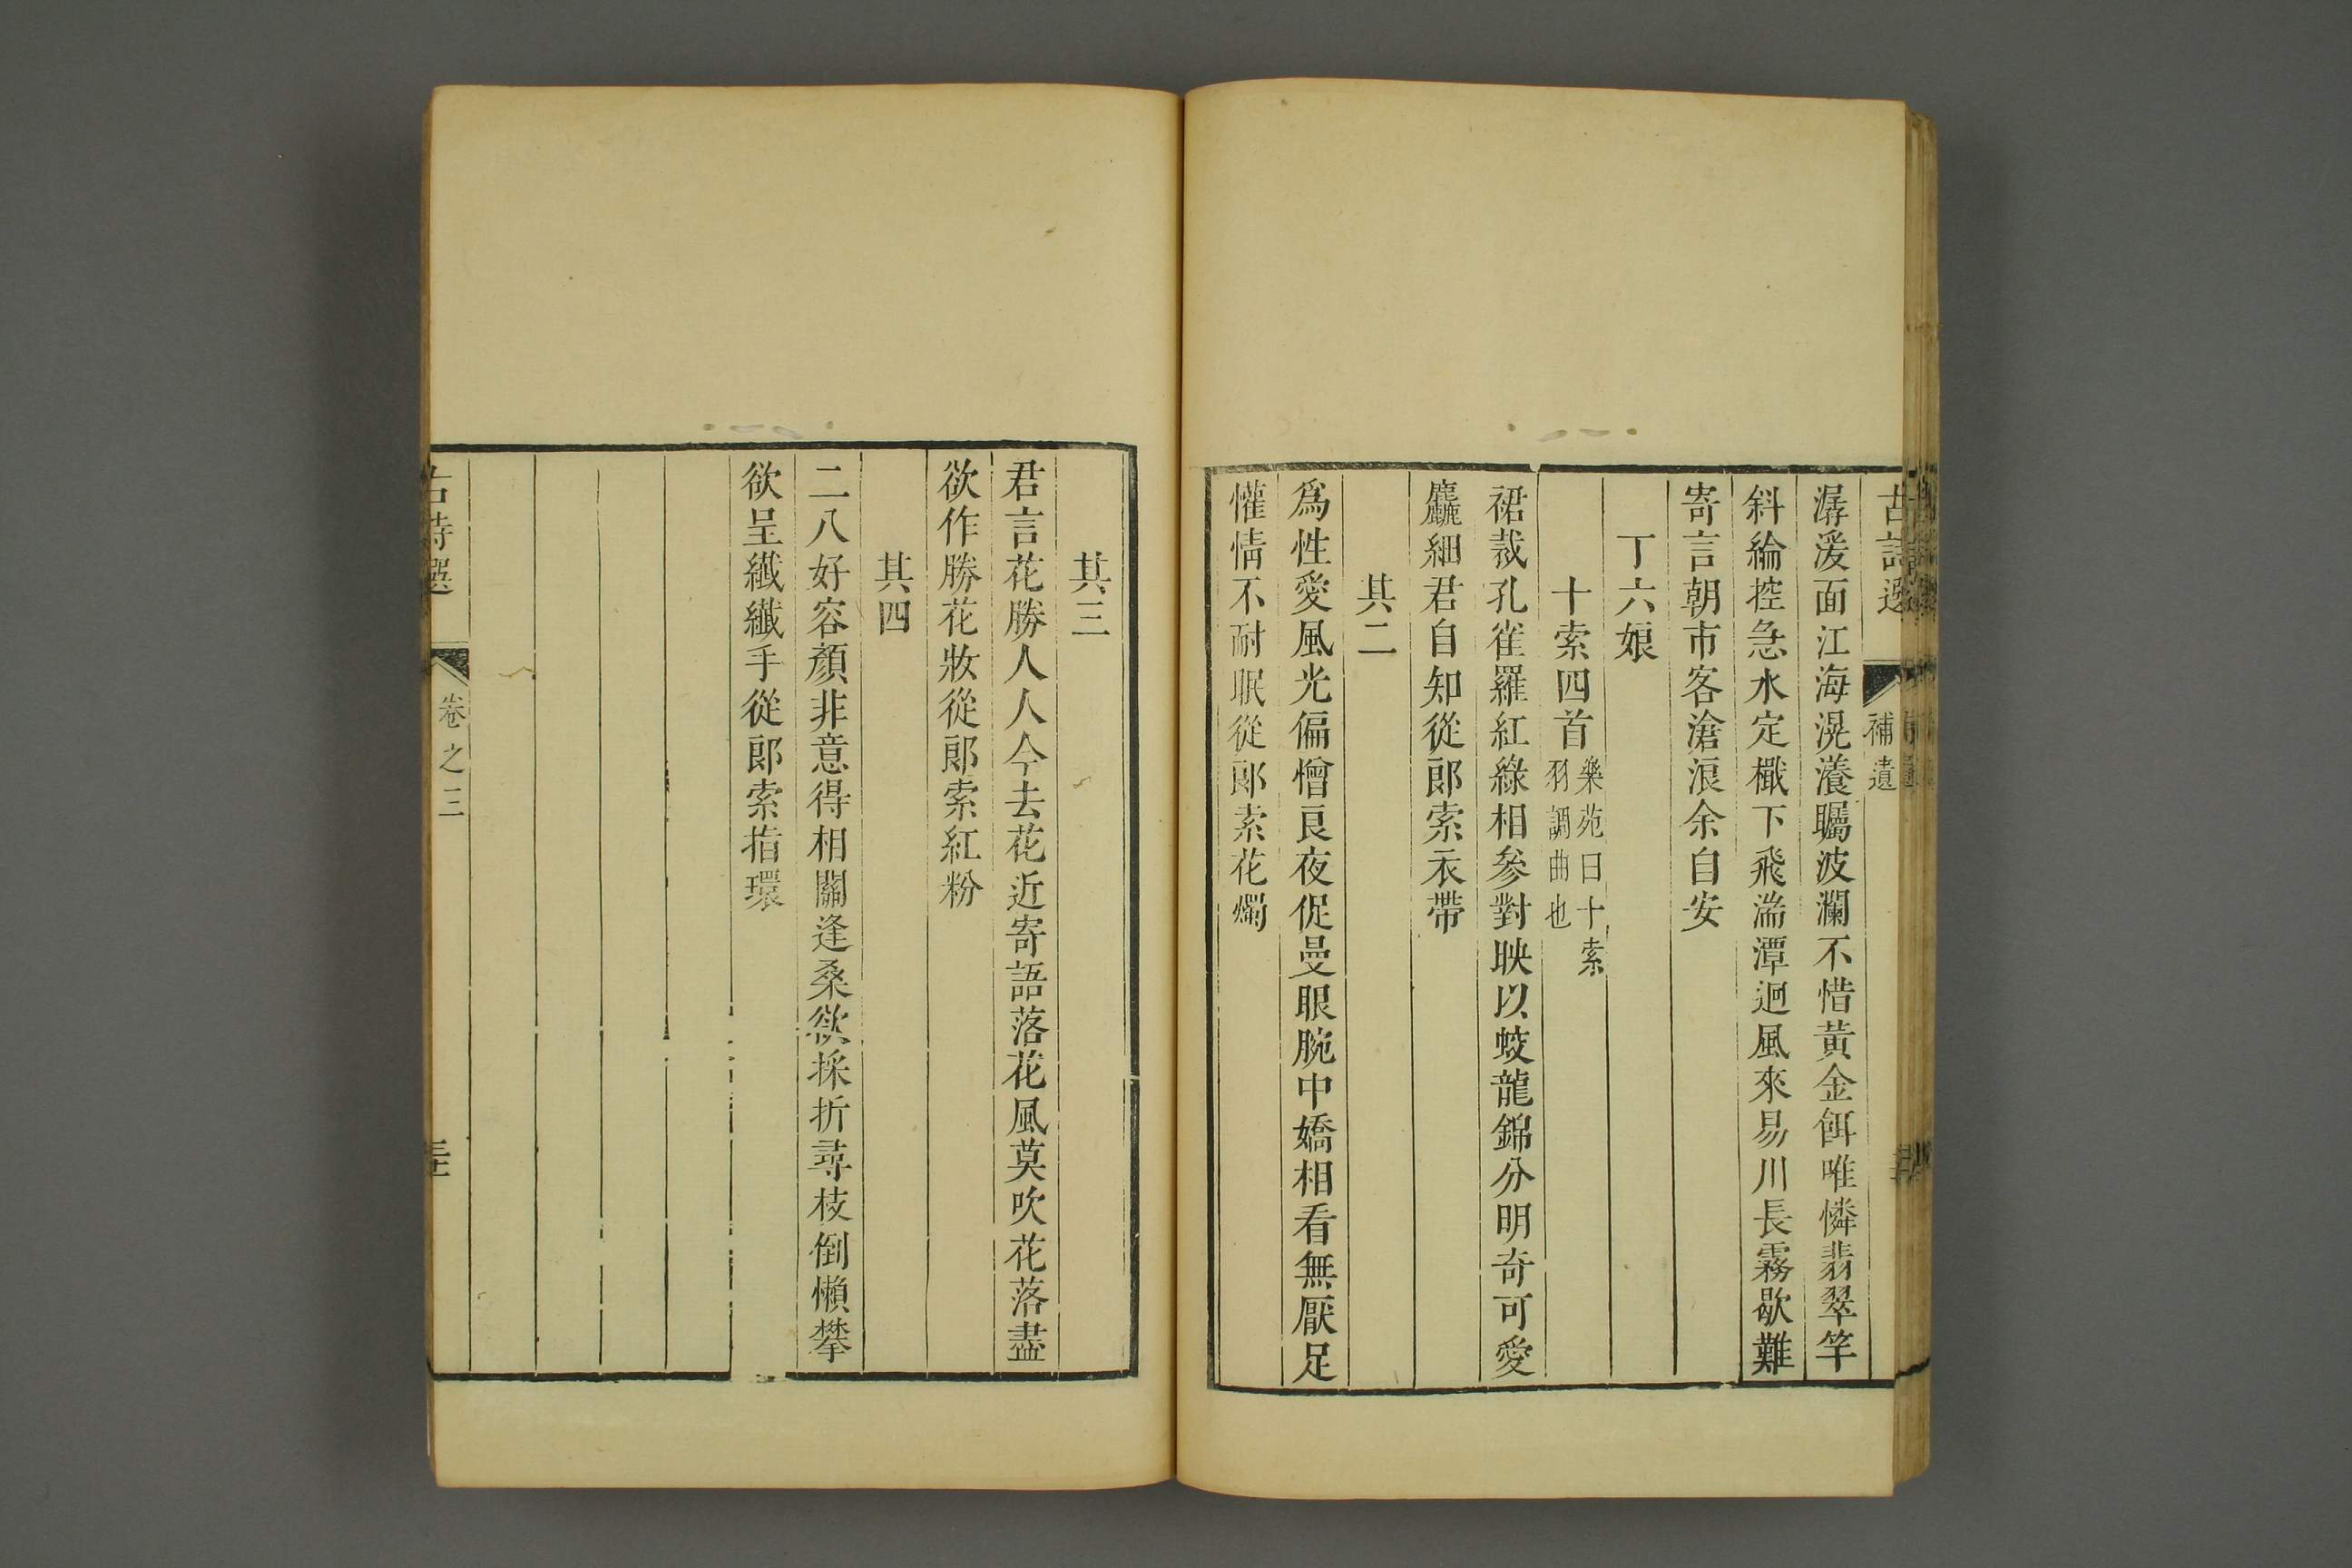 古詩選
補遺
潺湲面江海滉瀁矚波瀾不惜黃金餌唯憐翡翠竿
斜綸控急水定檝下飛湍潭迴風來易川長霧歇難
寄言朝市客滄浪余自安
丁六娘
十索四首
樂苑曰十索
羽調曲也
裙裁孔雀羅紅綠相參對映以蛟龍錦分明奇可愛
麤細君自知從郎索衣帶
其二
爲性愛風光偏憎良夜促曼眼腕中嬌相看無厭足
懽情不耐眠從郎索花燭
其三
君言花勝人人今去花近寄語落花風莫吹花落盡
欲作勝花妝從郎索紅粉
其四
二八好容顏非意得相關逢桑欲採折尋枝倒懶攀
欲呈纖纖手從郎索指環
古詩選
卷之三